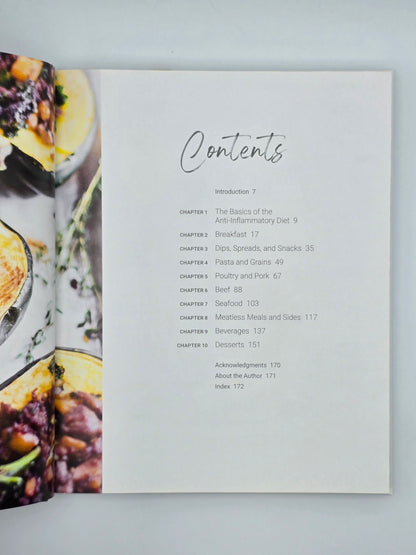 Contents
Introduction 7
CHAPTER 1 The Basics of the
Anti-Inflammatory Diet 9
CHAPTER 2 Breakfast 17
CHAPTER 3 Dips, Spreads, and Snacks 35
CHAPTER 4 Pasta and Grains 49
CHAPTER 5 Poultry and Pork 67
CHAPTER 6 Beef 88
CHAPTER 7 Seafood 103
CHAPTER 8 Meatless Meals and Sides 117
CHAPTER 9 Beverages 137
CHAPTER 10 Desserts 151
Acknowledgments 170
About the Author 171
Index 172